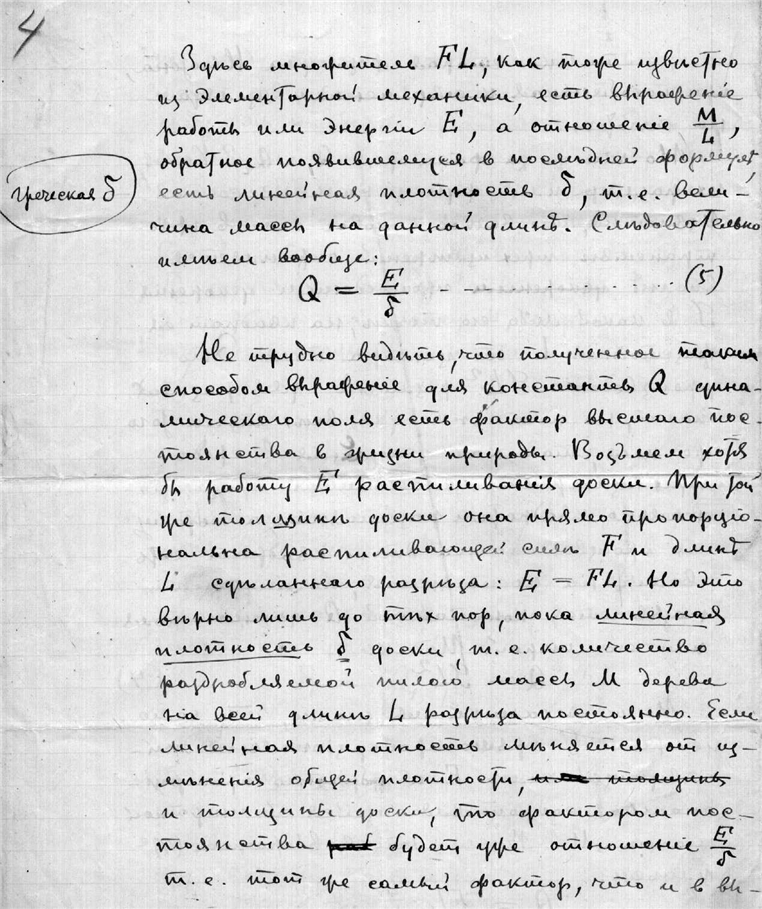 4
Здѣсь множитель FL, как тоже извѣстно
из элементарной механики, есть выраженіе
работы или энергіи E, а отношеніе M/L,
обратное появившемуся в послѣдней формулѣ,
есть линейная плотность δ, т.е. вели-
греческая δ
чина массы на данной длинѣ. Слѣдовательно
имѣем вообще:
Q = E/δ - - - . . . . . . . . . (5)
Не трудно видѣть, что полученное таким
способом выраженіе для константы Q дина-
мическаго поля есть фактор высшаго пос-
тоянства в жизни природы. Возьмем хотя
бы работу E распиливанія доски. При той
же толщинѣ доски она прямо пропорціо-
нальна распиливающей силѣ F и длинѣ
L сдѣланнаго разрѣза: E = FL. Но это
вѣрно лишь до тѣх пор, пока линейная
плотность δ доски, т.е. количество
раздробляемой пилою массы M дерева
на всей длинѣ L разрѣза постоянно. Если
линейная плотность мѣняется от из-
мѣненія общей плотности, или толщины
и толщины доски, то фактором пос-
тоянства будет уже отношеніе E/δ
т.е. тот же самый фактор, что и в вы-